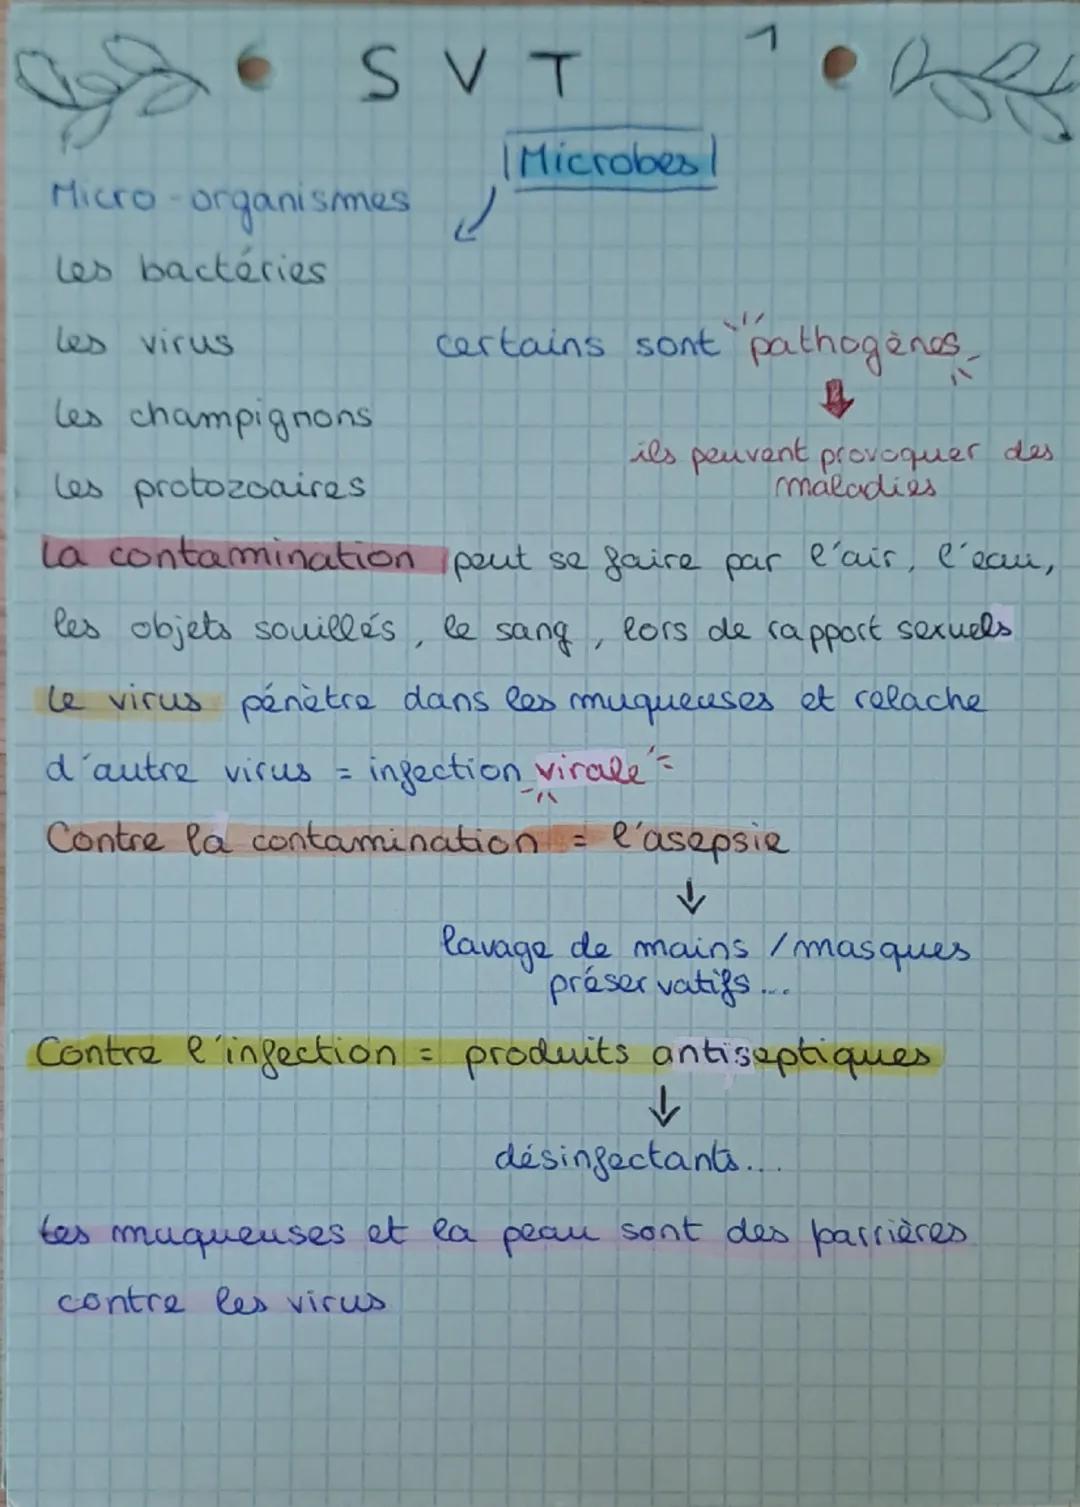 SVT 1
Microbes
Micro-organismes
Les bactéries
Les virus
certains sont "pathogènes
Les champignons
ils peuvent provoquer des
maladies
Les protozoaires
La contamination peut se faire par l'air, l'eau,
les objets souillés, le sang, lors de rapport sexuels
Le virus pénètre dans les muqueuses et relache
d'autre virus = infection virale
Contre la contamination = l'asepsie
↓
lavage de mains / masques
préservatifs...
Contre l'infection = produits antiseptiques
↓
désinfectants...
Les muqueuses et la peau sont des barrières
contre les virus